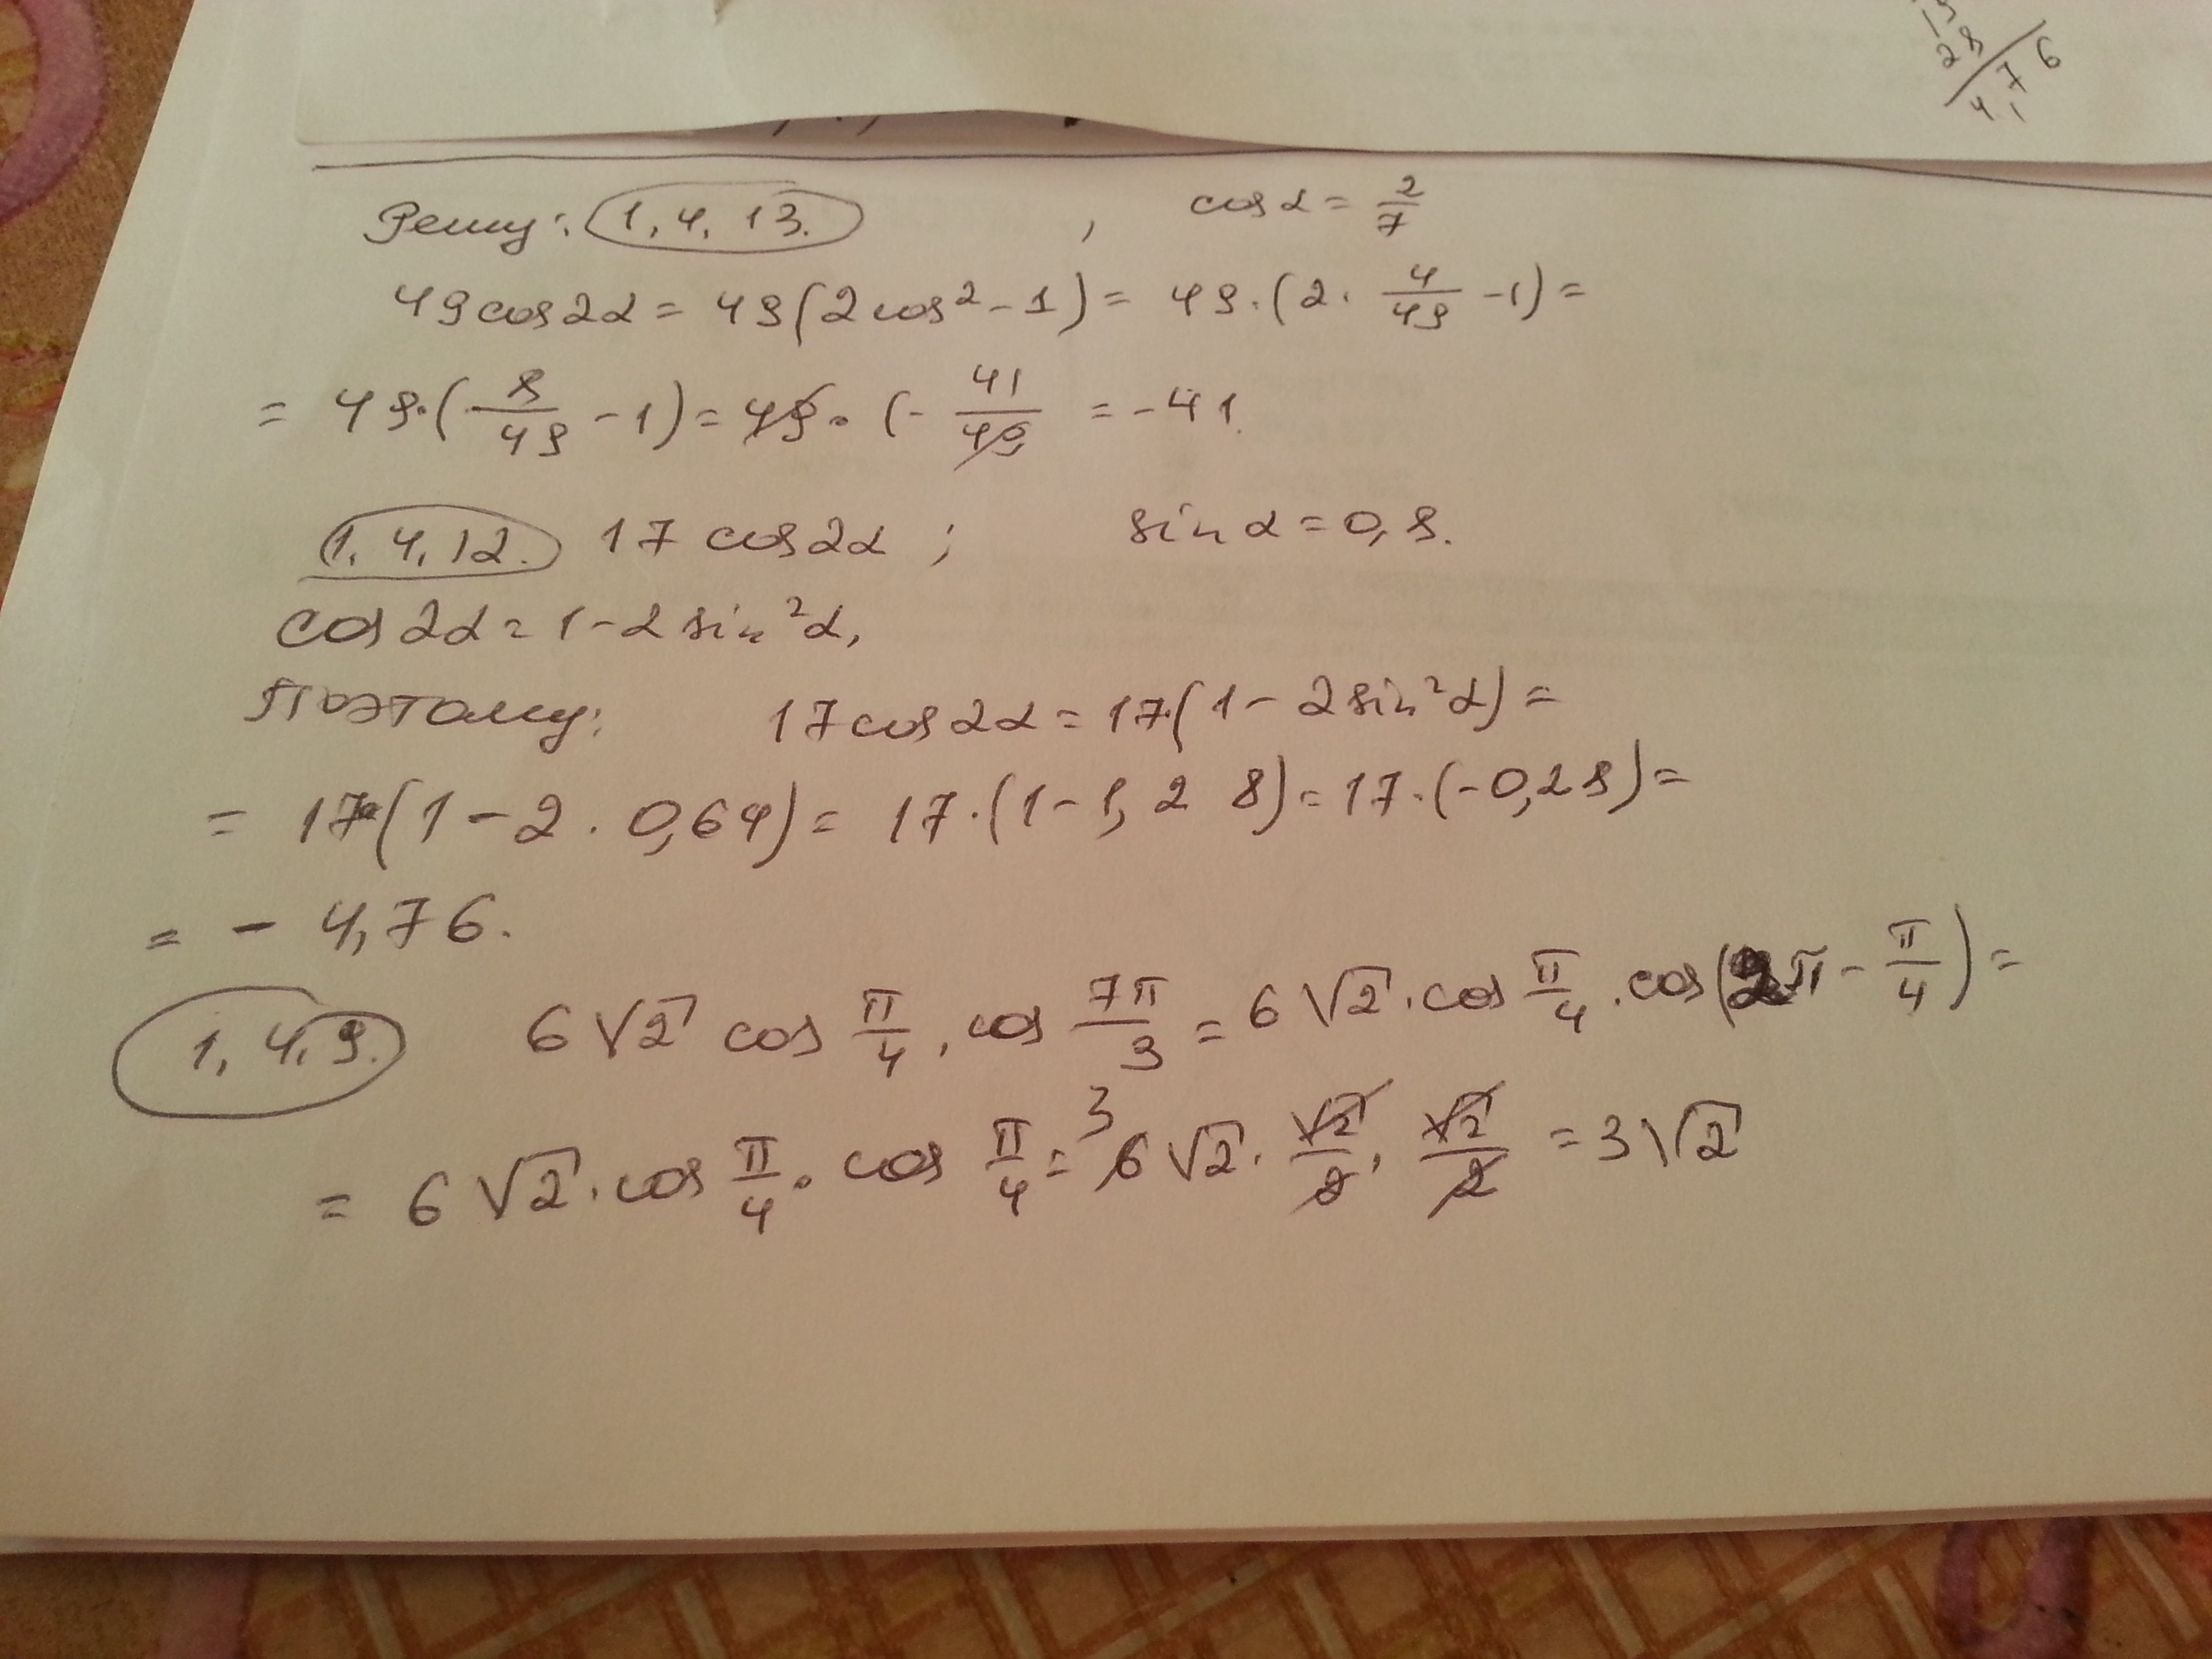 28
4,76
Решу: 1,4,13. , cos α = 2/7
49cos2α = 49(2cos² - 1) = 49·(2· 4/49 -1) =
= 49·(8/49 - 1) = 49·(- 41/49 = - 41.
1,4,12. 17 cos2α ; sin α = 0,8.
cos 2α = 1 - 2 sin²α,
Поэтому: 17cos2α = 17·(1 - 2sin²α) =
= 17·(1 - 2 · 0,64) = 17·(1 - 1,28) = 17·(-0,28) =
= - 4,76.
1,4,9. 6√2 cos π/4 · cos 7π/3 = 6√2 · cos π/4 · cos(2π - π/4) =
= 6√2 · cos π/4 · cos π/4 = ³6√2 · √2/2 · √2/2 = 3√2